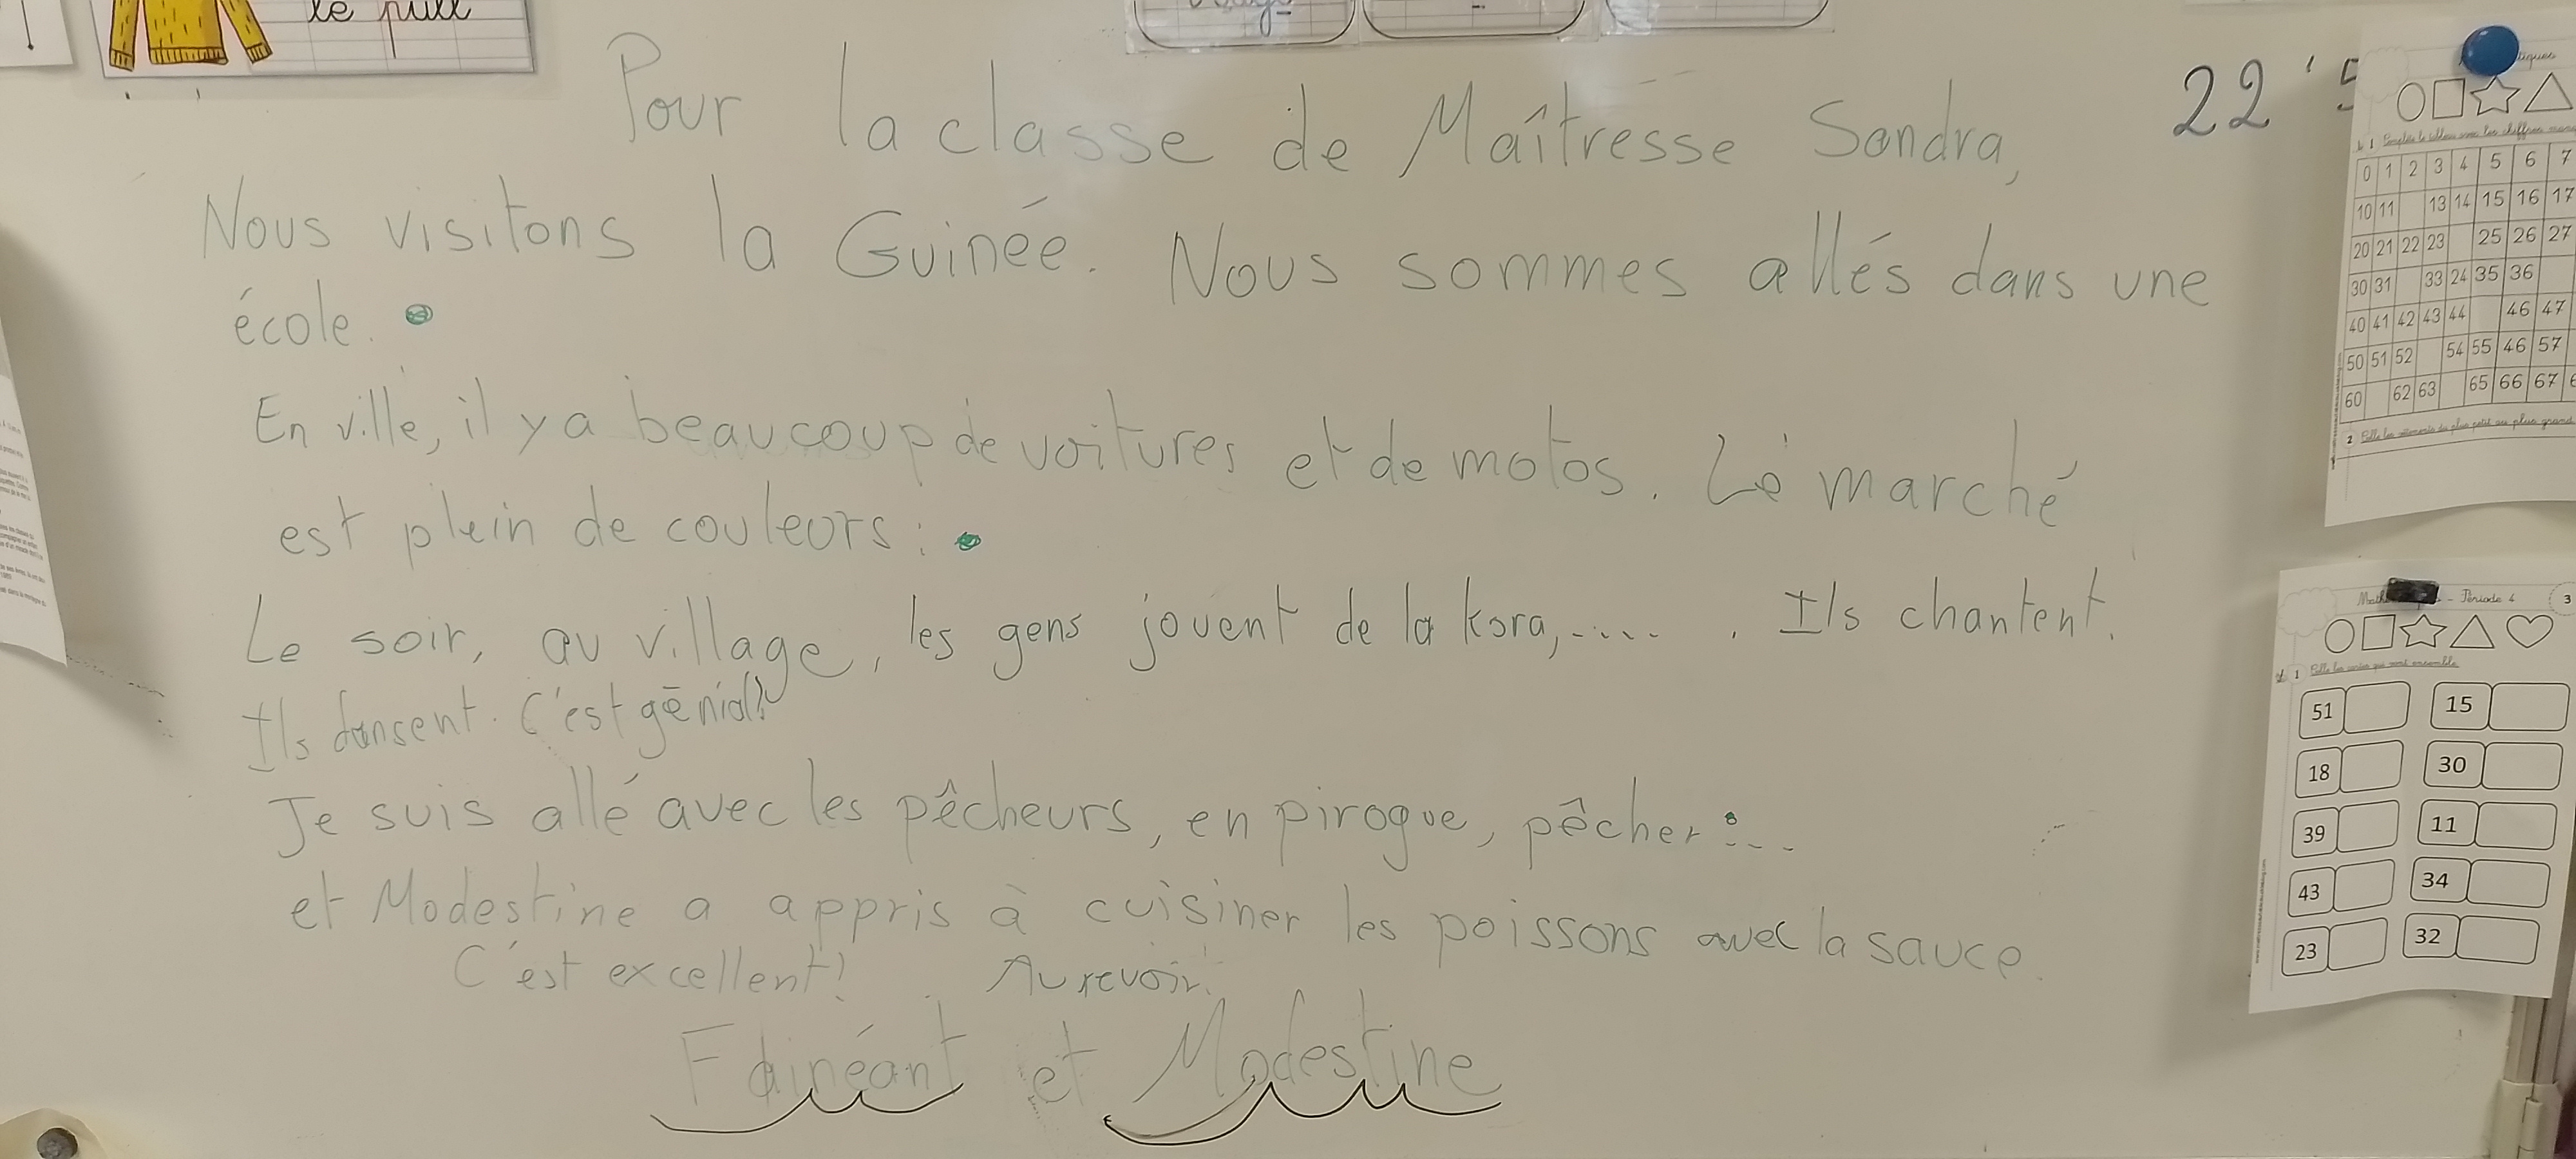 le pull
Pour la classe de Maîtresse Sandra,
22
Nous visitons la Guinée. Nous sommes allés dans une
école.
En ville, il y a beaucoup de voitures et de motos. Le marché
est plein de couleurs :
Le soir, au village, les gens jouent de la kora,..... . Ils chantent.
Ils dansent. C'est génial!
Je suis allé avec les pêcheurs, en pirogue, pêcher :...
et Modestine a appris à cuisiner les poissons avec la sauce.
C'est excellent! Au revoir!
Fainéant et Modestine
tiques
1 Complète le tableau avec les chiffres
0 1 2 3 4 5 6 7
10 11 13 14 15 16 17
20 21 22 23 25 26 27
30 31 33 24 35 36
40 41 42 43 44 46 47
50 51 52 54 55 46 57
60 62 63 65 66 67
2 du plus petit au plus grand
Math - Période 4 3
1 Colle les unités qui sont ensemble
51 15
18 30
39 11
43 34
23 32